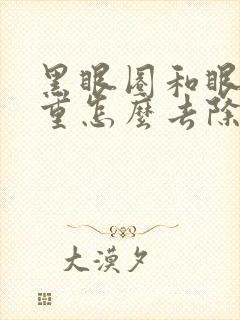 黑眼圈和眼
重怎麼去除
大漠夕